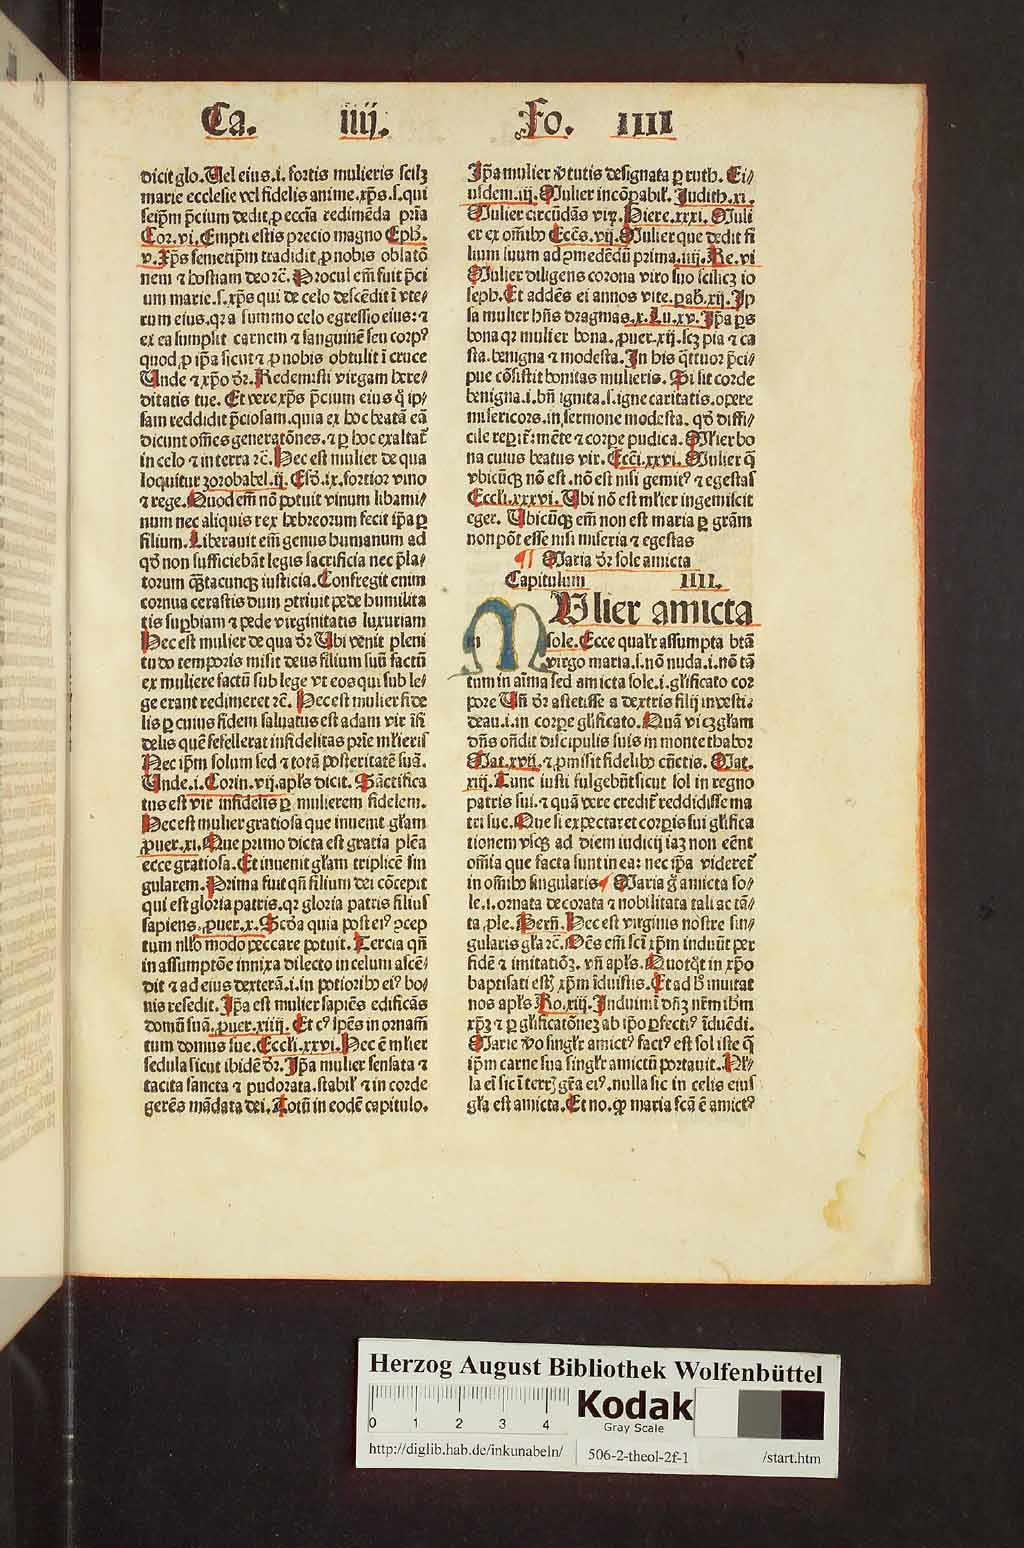 Ca. iiij. Fo. IIII
dicit glo. Uel eius .i. fortis mulieris scilꝫ
marie ecclesie vel fidelis anime. xp̄s .s. qui
seip̄m p̄cium dedit, ꝓ eccīa redimēda pr̄ia
Cor. vi. Empti estis precio magno Eph̄.
v. Xp̄s semetip̄m tradidit ꝓ nobis oblatō
nem ⁊ hostiam deo ⁊c̄. Procul em̄ fuit p̄ci
um marie .s. xp̄s qui de celo descēdit ī vte⸗
rum eius. qꝛ a summo celo egressio eius: ⁊
ex ea sumpsit carnem ⁊ sanguinē seu corpꝰ
quod ꝓ ip̄a sicut ⁊ ꝓ nobis obtulit ī cruce
Unde ⁊ xp̄o dr̄. Redemisti virgam here⸗
ditatis tue. Et vere xp̄s p̄cium eius q̇ ip⸗
sam reddidit p̄ciosam. quia ex hoc beatā eā
dicunt om̄es generatōnes. ⁊ ꝑ hoc exaltat̄
in celo ⁊ in terra ⁊c̄. Hec est mulier de qua
loquitur zorobabel .ij. Esd̄. ix. fortior vino
⁊ rege. Quod em̄ nō potuit vinum libami⸗
num nec aliquis rex hebreorum fecit ip̄a ꝑ
filium. Liberauit em̄ genus humanum ad
qd̄ non sufficiebāt legis sacrificia nec p̄la⸗
torum q̄ntacunqꝫ iusticia. Confregit enim
cornua cerastis dum ꝯtriuit pede humilita
tis suꝑbiam ⁊ pede virginitatis luxuriam
Hec est mulier de qua dr̄ Ubi venit pleni
tudo temporis misit deus filium suū factū
ex muliere factū sub lege vt eos qui sub le⸗
ge erant redimeret ⁊c̄. Hec est mulier fide
lis ꝑ cuius fidem saluatus est adam vir īfi
delis quē fefellerat infidelitas prīe ml̄ieris
Nec ip̄m solum sed ⁊ totā posteritatē suā.
Unde .i. Corin. vij. apl̄s dicit. Sāctifica
tus est vir infidelis ꝑ mulierem fidelem.
Hec est mulier gratiosa que inuenit gl̄am
ꝓuer. xi. Que primo dicta est gratia plēa
ecce gratiosa. Et inuenit gl̄am triplicē sin
gularem. Prima fuit qn̄ filium dei cōcepit
qui est gloria patris. qꝛ gloria patris filius
sapiens. ꝓuer. x. Scd̄a quia post eiꝰ ꝯcep
tum nll̄o modo peccare potuit. Tercia qn̄
in assumptōe innixa dilecto in celum ascē⸗
dit ⁊ ad eius dexterā .i. in potiorib⁹ eiꝰ bo⸗
nis resedit. Ip̄a est mulier sapiēs edificās
domū suā. ꝓuer. xiiij. Et cꝰ spēs in ornam̄
tum domus sue. Eccl̄i. xxvi. Hec ē ml̄ier
sedula sicut ibidē dr̄. Ip̄a mulier sensata ⁊
tacita sancta ⁊ pudorata. stabil̄ ⁊ in corde
gerēs mādata dei. Totū in eodē capitulo.
Ip̄a mulier v̄tutis designata ꝑ ruth. Ei⸗
usdem .iij. Mulier incōpabil̄. Judith. xi.
Mulier circūdās viꝝ. Hiere. xxxi. Muli
er ex om̄ib⁹ Eccēs. vij. Mulier que dedit fi
lium suum ad ꝯmedēdū prima .iiij. Re. vi
Mulier diligens corona viro suo scilicꝫ io
seph. Et addēs ei annos vite. pab. xij. Ip
sa mulier hn̄s dragmas .x. Lu. xv. Ip̄a ꝑs
bona qꝛ mulier bona. ꝓuer. xij. scꝫ pia ⁊ ca
sta. benigna ⁊ modesta. In his q̄ttuor p̄ci⸗
pue cōsistit bonitas mulieris. Si sit corde
benigna .i. bn̄ ignita .s. igne caritatis. opere
misericors. in sermone modesta. qd̄ diffi⸗
cile reꝑit̄: mēte ⁊ corpe pudica. Ml̄ier bo
na cuius beatus vir. Eccī. xxvi. Mulier q̄
vbicūqꝫ nō est. nō est nisi gemitꝰ ⁊ egestas
Eccl̄i. xxxvi. Ubi nō est ml̄ier ingemiscit
eger. Ubicūqꝫ em̄ non est maria ꝑ gr̄am
non pōt esse nisi miseria ⁊ egestas
¶ Maria dr̄ sole amicta
Capitulum IIII.
MUlier amicta
sole. Ecce qualr̄ assumpta btā
virgo maria .s. nō nuda .i. nō tā
tum in aīma sed amicta sole .i. gl̄ificato cor
pore Un̄ dr̄ astetisse a dextris filij in vesti.
deau .i. in corpe gl̄ificato. Quā vicꝫ gl̄am
dn̄s ondit discipulis suis in monte thabor
Mat. xvij. ⁊ ꝓmisit fidelib⁹ cūctis. Mat.
xiij. Tunc iusti fulgebūt sicut sol in regno
patris sui. ⁊ quā vere credit̄ reddidisse ma
tri sue. Que si expectaret corpis sui gl̄ifica
tionem vsqꝫ ad diem iudicij iaꝫ non eēnt
om̄ia que facta sunt in ea: nec ip̄a videret̄
in om̄ib⁹ singularis ¶ Maria g̊ amicta so⸗
le .i. ornata decorata ⁊ nobilitata tali ac tā⸗
ta, ple. Bern̄. Hec est virginis nostre sin⸗
gularis gl̄a ⁊c̄. Oēs em̄ scī xp̄m induūt per
fidē ⁊ imitatiōꝫ. vn̄ apl̄s. Quotq̇t in xp̄o
baptisati estꝭ xp̄m īduistis. Et ad h̄ inuitat
nos apl̄s Ro. xiij. Induimī dn̄ꝫ nr̄m ihm
xp̄ꝫ ⁊ ꝑ gl̄ificatōneꝫ ab ip̄o ꝑfectiꝰ īduēdi.
Marie v̊o singl̄r amictꝰ factꝰ est sol iste q̄
ip̄m carne sua singl̄r amictū portauit. Nl̄⸗
la eī sic ī terrꝭ gēa eiꝰ. nulla sic in celis eius
gl̄a est amicta. Et no. ꝙ maria scā ē amictꝰ
Herzog August Bibliothek Wolfenbüttel
0 1 2 3 4
Kodak
Gray Scale
http://diglib.hab.de/inkunabeln/ 506-2-theol-2f-1 /start.htm